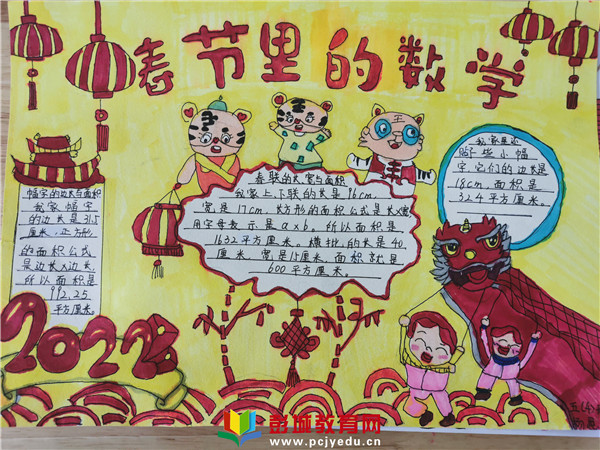 春节里的数学
幅字的边长与面积
我家幅字
的边长是31.5
厘米,正方形
的面积公式
是边长X边长,
所以面积是
992.25
平方厘米。
春联的长宽与面积
我家上、下联的长是96cm,
宽是17cm,长方形的面积公式是长X宽
用字母表示是axb,所以面积是
1632平方厘米。横批的长是40
厘米,宽是15厘米,面积就是
600平方厘米。
我家里还
有一些小幅
字,它们的边长是
18cm,面积是
324平方厘米。
2022
五(4)
彭城教育网
www.pcjyedu.cn